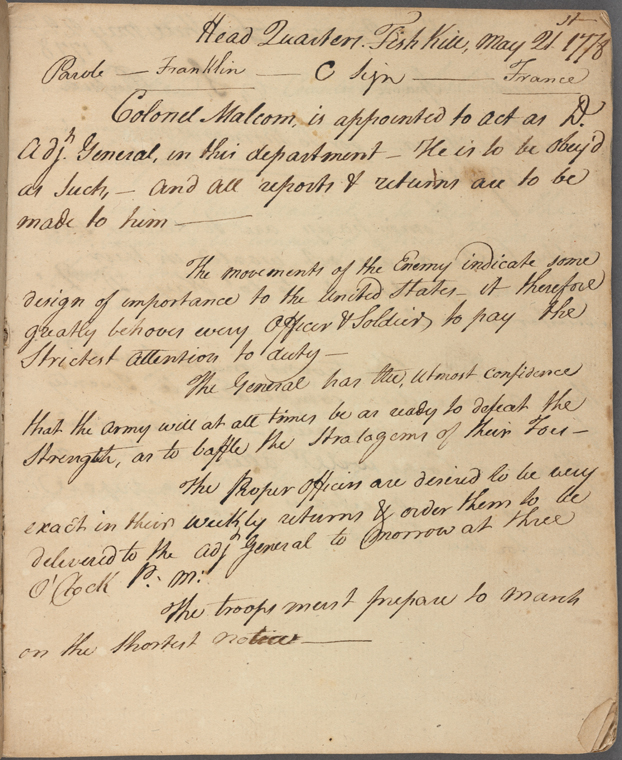 Head Quarters. Fish Kill, May 21st 1778
Parole — Franklin — C Sign — France
Colonel Malcom, is appointed to act as D.
Adjt. General, in this department — He is to be obey'd
as such, — and all reports & returns are to be
made to him —
The movements of the Enemy indicate some
design of importance to the United States — it therefore
greatly behoves every Officer & Soldier, to pay the
Strictest attention to duty —
The General has the, utmost confidence
that the army will at all times be as ready to defeat the
Strength, as to baffle the Stratagems of their Foes —
The Proper Officers are desired to be very
exact in their weekly returns & order them to be
delivered to the Adjt General to morrow at three
O'Clock P. m.
The troops must prepare to march
on the shortest notice —